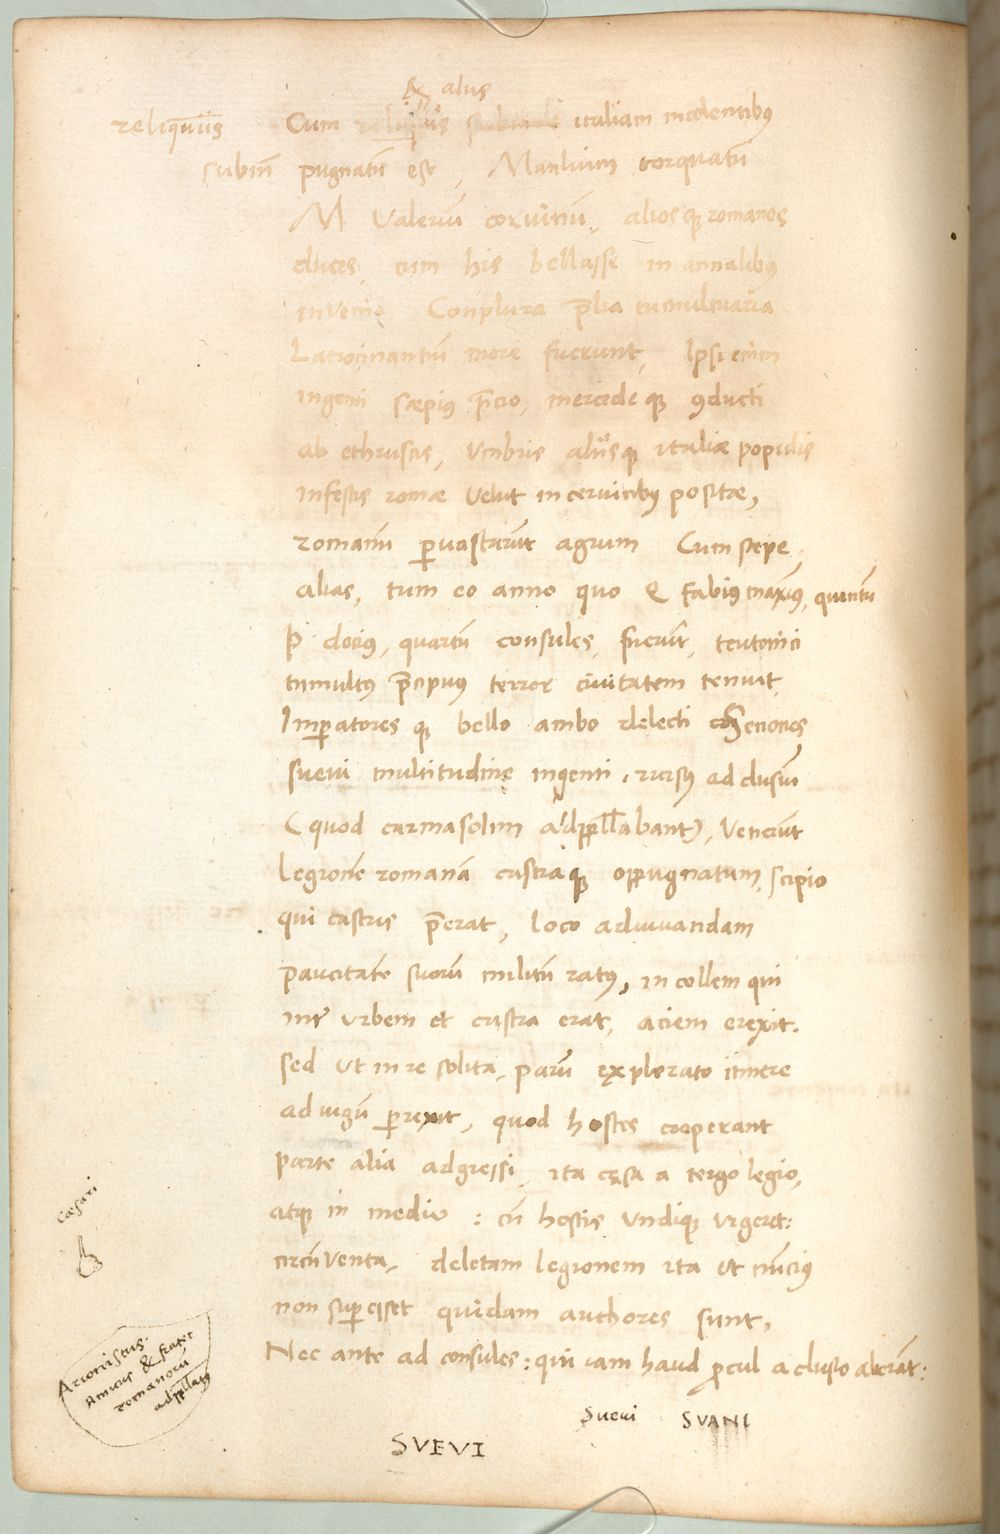 & alus
reliquiis Cum italiam incolentibus
subin pugnatū est, Manlium torquatū
M Valeriū corvinū, aliosque romanos
duces, cum his bellasse in annalibus
invenio Conplura p̄lia tumultuaria
Latrocinantiū more fuerunt, Ipsi enim
ingenti sæpius p̄cio, mercede que 9ducti
ab ethruscis, Vmbris aliisque italiæ populis
infestis romæ velut in cervicibus positæ,
romanū pervastarūt agrum Cum sæpe
alias, tum eo anno quo Q Fabius maxīus, quintū
P decius, quartū consules, fuerūt, teutonici
tumultus p̄cipuus terror civitatem tenuit
Imperatores que bello ambo delecti Senones
suevi multitudine ingenti, rursus ad clusiū
(quod camarsolim adpellabant), Venerūt
legionē romanā castraque oppugnatum, scipio
qui castris p̄erat, loco adiuvandam
paucitatē suorū militū ratus, in collem qui
inter urbem et castra erat, aciem erexit.
sed ut in re solita, parū explorato itinere
ad iugū perrexit, quod hostes cœperant
parte alia adgressi, ita cęsa a tergo legio,
atque in medio : cū hostis undique urgeret:
circūventa, deletam legionem ita ut nūcius
non superesset quidam authores sunt,
Nec ante ad consules: qui iam haud procul a clusio aberāt:
Suevi SVANI
SVEVI
cæsari
Ariovistus.
Amicus & frater
romanorū
adpellatus